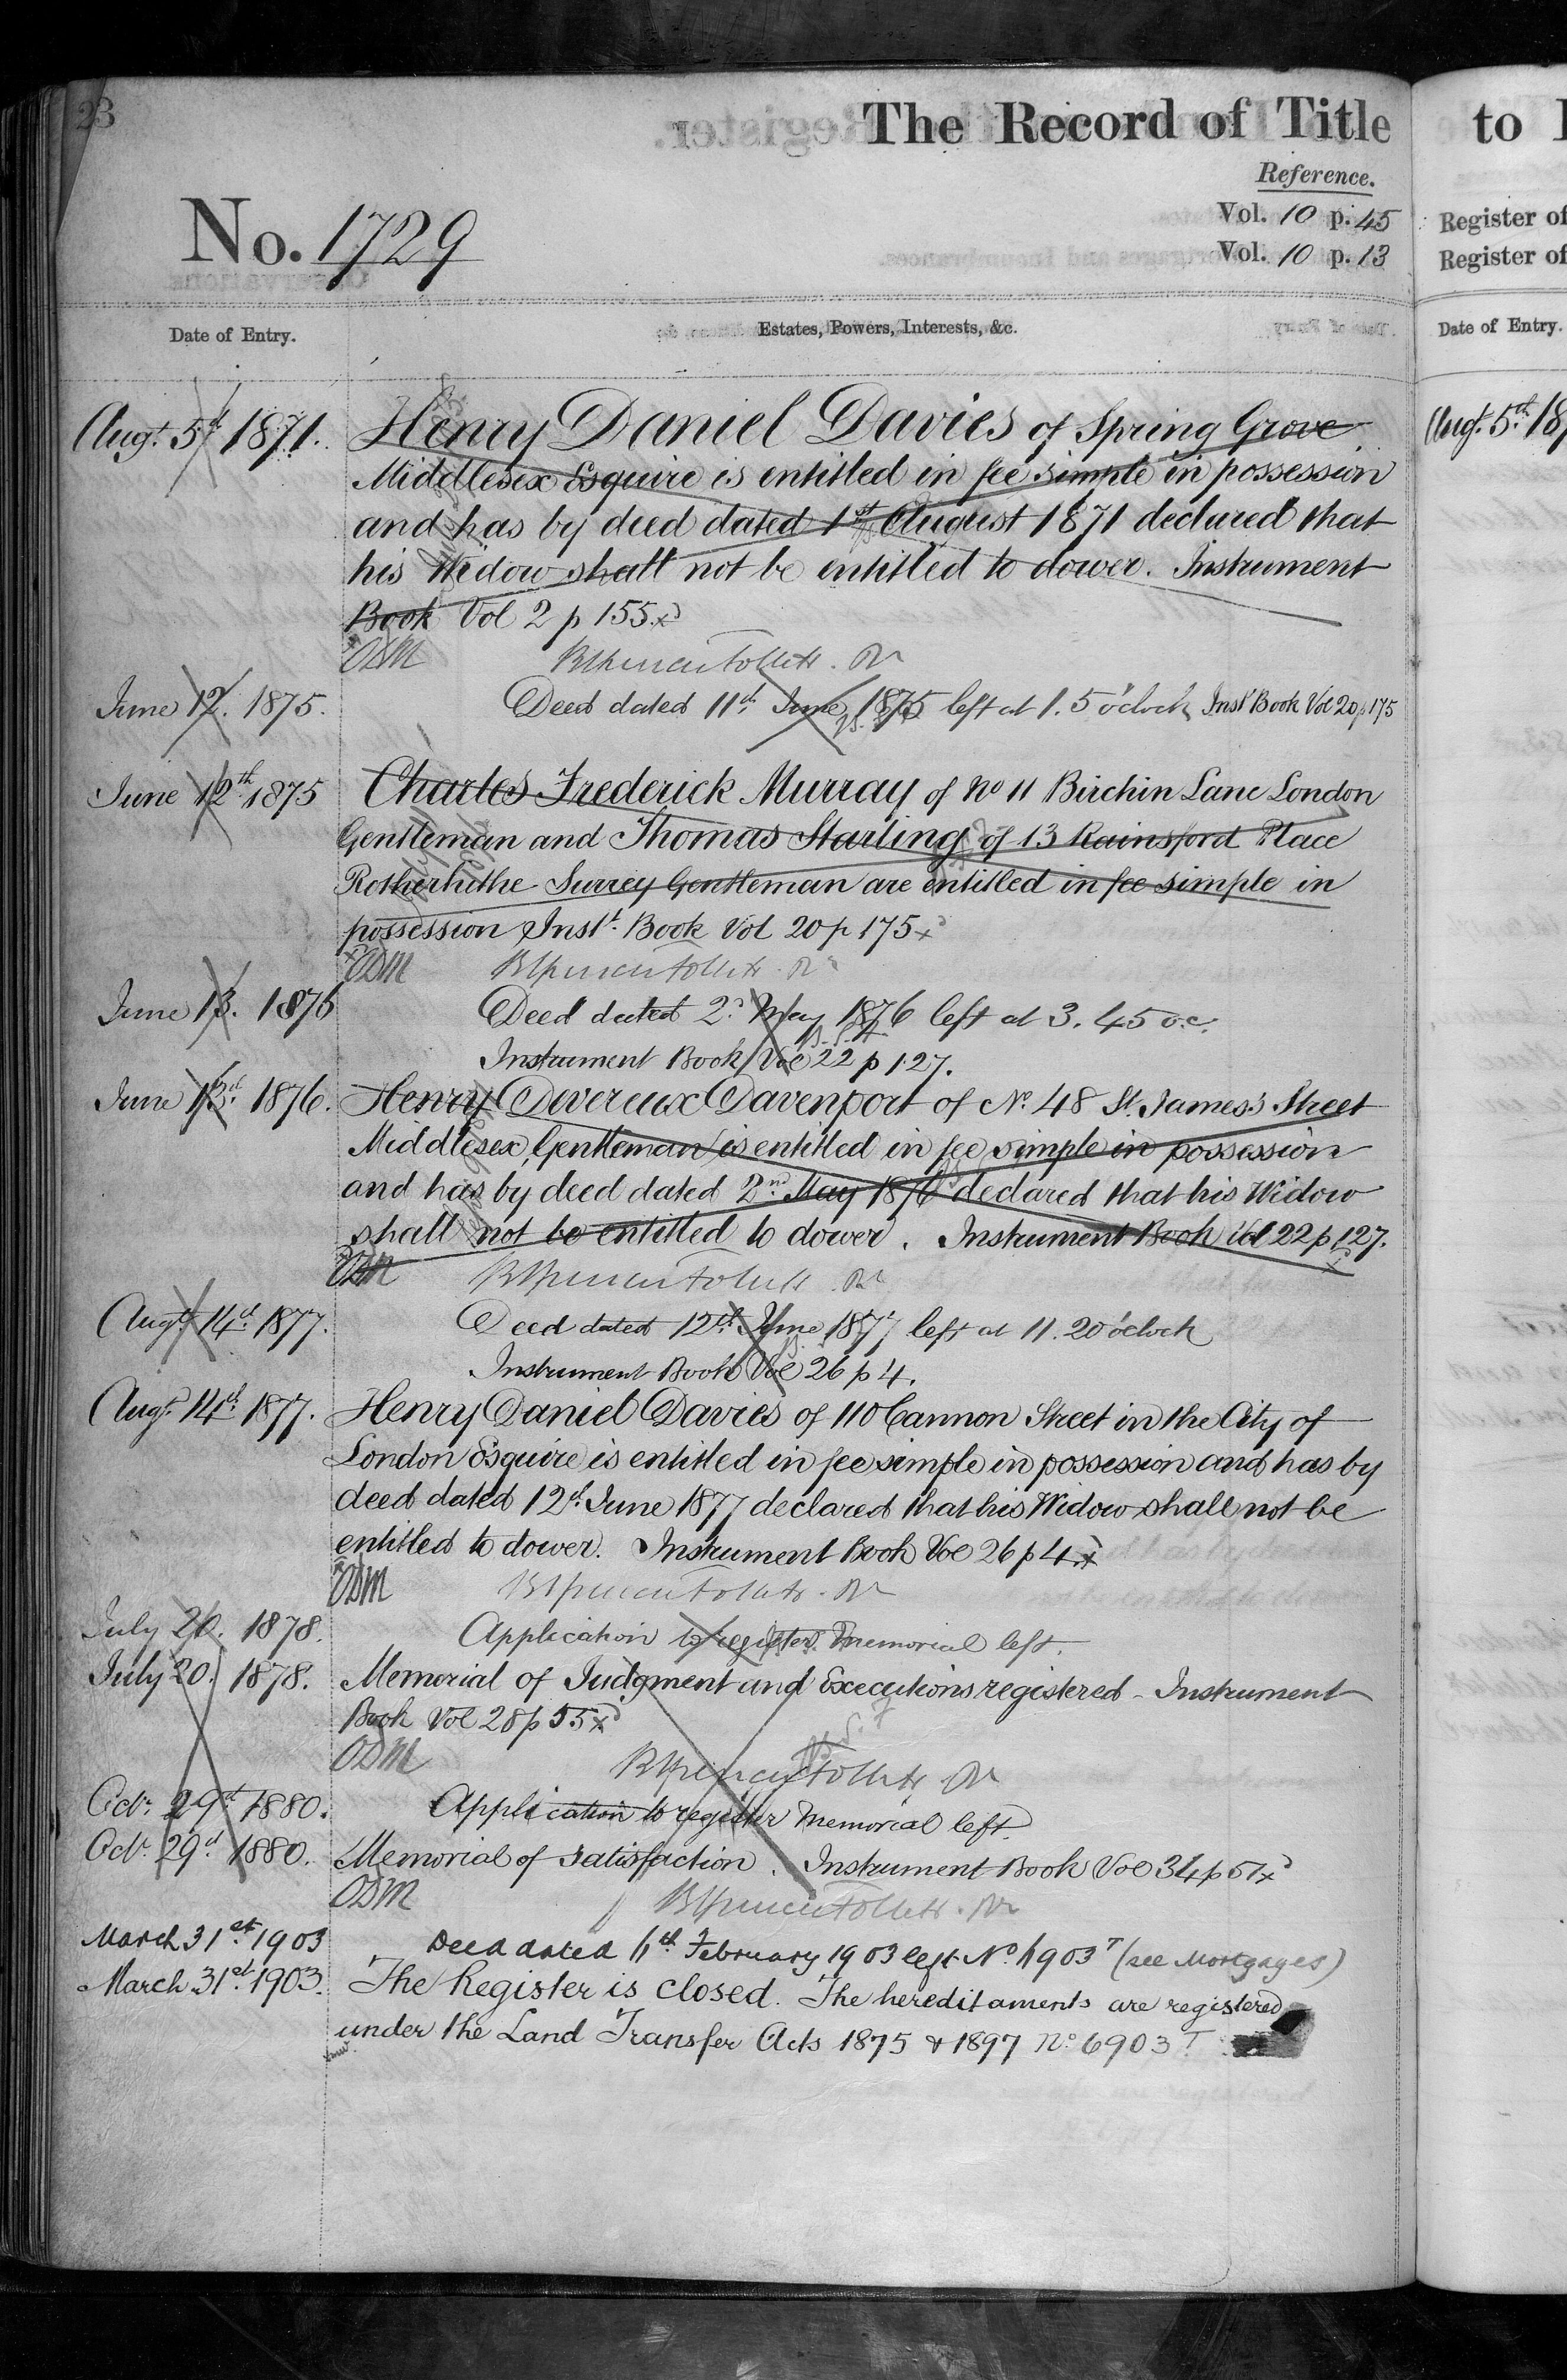 23
The Record of Title
to
Reference.
No. 1729
Vol. 10 p. 45
Vol. 10 p. 13
Register of
Register of
Date of Entry.
Estates, Powers, Interests, &c.
Date of Entry.
Augt. 5th 1871. Henry Daniel Davies of Spring Grove
Middlesex Esquire is entitled in fee simple in possession
and has by deed dated 1st August 1871 declared that
his Widow shall not be entitled to dower. Instrument
Book Vol 2 p 155
Augt. 5th
June 12. 1875. Deed dated 11th June 1875 left at 1.5 o'clock Inst Book Vol 20 p 175
June 12th 1875 Charles Frederick Murray of No 11 Birchin Lane London
Gentleman and Thomas Starling of 13 Rainsford Place
Rotherhithe Surrey Gentleman are entitled in fee simple in
possession Inst. Book Vol 20 p 175
June 13. 1876 Deed dated 2d May 1876 left at 3.45 o.c.
Instrument Book Vol 22 p 127.
June 13th 1876. Henry Devereux Davenport of No. 48 St. James's Street
Middlesex, Gentleman is entitled in fee simple in possession
and has by deed dated 2nd May 1876 declared that his Widow
shall not be entitled to dower. Instrument Book Vol 22 p 127.
Augt. 14th 1877. Deed dated 12th June 1877 left at 11.20 o'clock
Instrument Book Vol 26 p 4.
Augt. 14th 1877. Henry Daniel Davies of 110 Cannon Street in the City of
London Esquire is entitled in fee simple in possession and has by
deed dated 12th June 1877 declared that his Widow shall not be
entitled to dower. Instrument Book Vol 26 p 4.
July 20. 1878. Application to register Memorial left.
July 20. 1878. Memorial of Judgment and Executions registered - Instrument
Book Vol 28 p 55
Octr. 29th 1880. Application to register Memorial left.
Octr. 29th 1880. Memorial of Satisfaction. Instrument Book Vol 34 p 51
March 31st 1903 Deed dated 6th February 1903 left No. 6903T (see Mortgages)
March 31st 1903. The Register is closed. The hereditaments are registered
under the Land Transfer Acts 1875 & 1897 No. 6903 T.